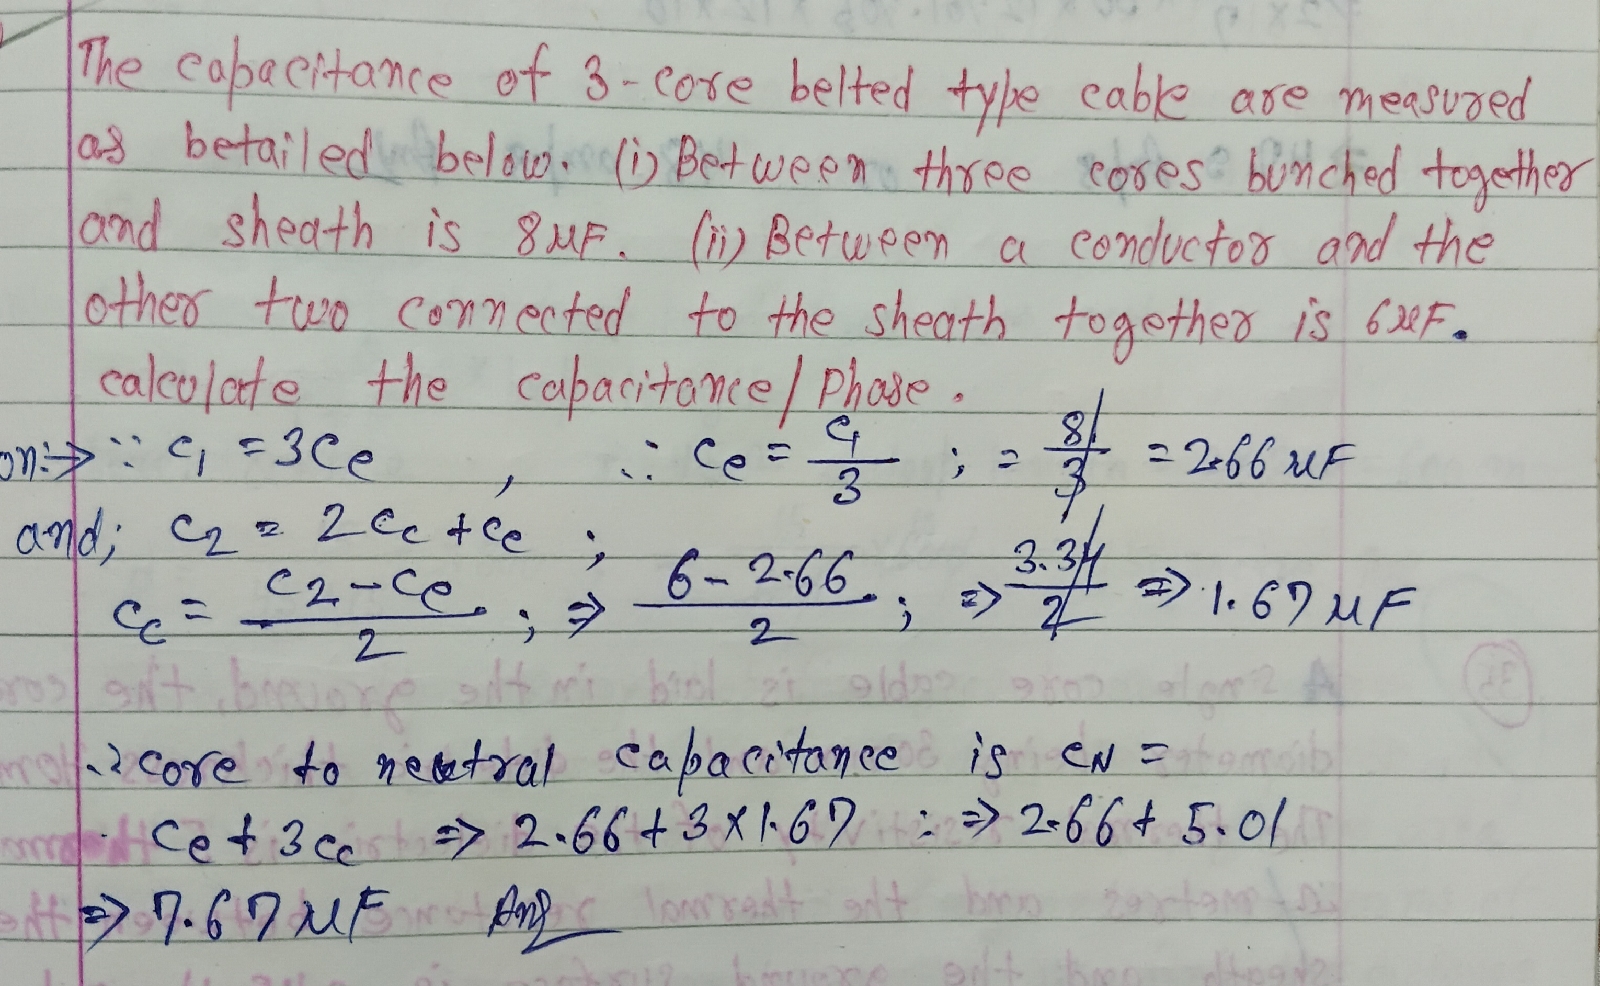 The capacitance of 3-core belted type cable are measured
as betailed below. (i) Between three cores bunched together
and sheath is 8μF. (ii) Between a conductor and the
other two connected to the sheath together is 6μF.
calculate the capacitance/Phase.
on:→ ∵ C₁ = 3Ce , ∴ Ce = C₁/3 ; = 8/3 = 2.66 μF
and; C₂ = 2Cc + Ce ;
Cc = C₂-Ce/2 ; ⇒ 6-2.66/2 ; ⇒ 3.34/2 ⇒ 1.67 μF
core to neutral capacitance is CN =
Ce + 3Cc ⇒ 2.66 + 3 × 1.67 : ⇒ 2.66 + 5.01
⇒ 7.67 μF Ans